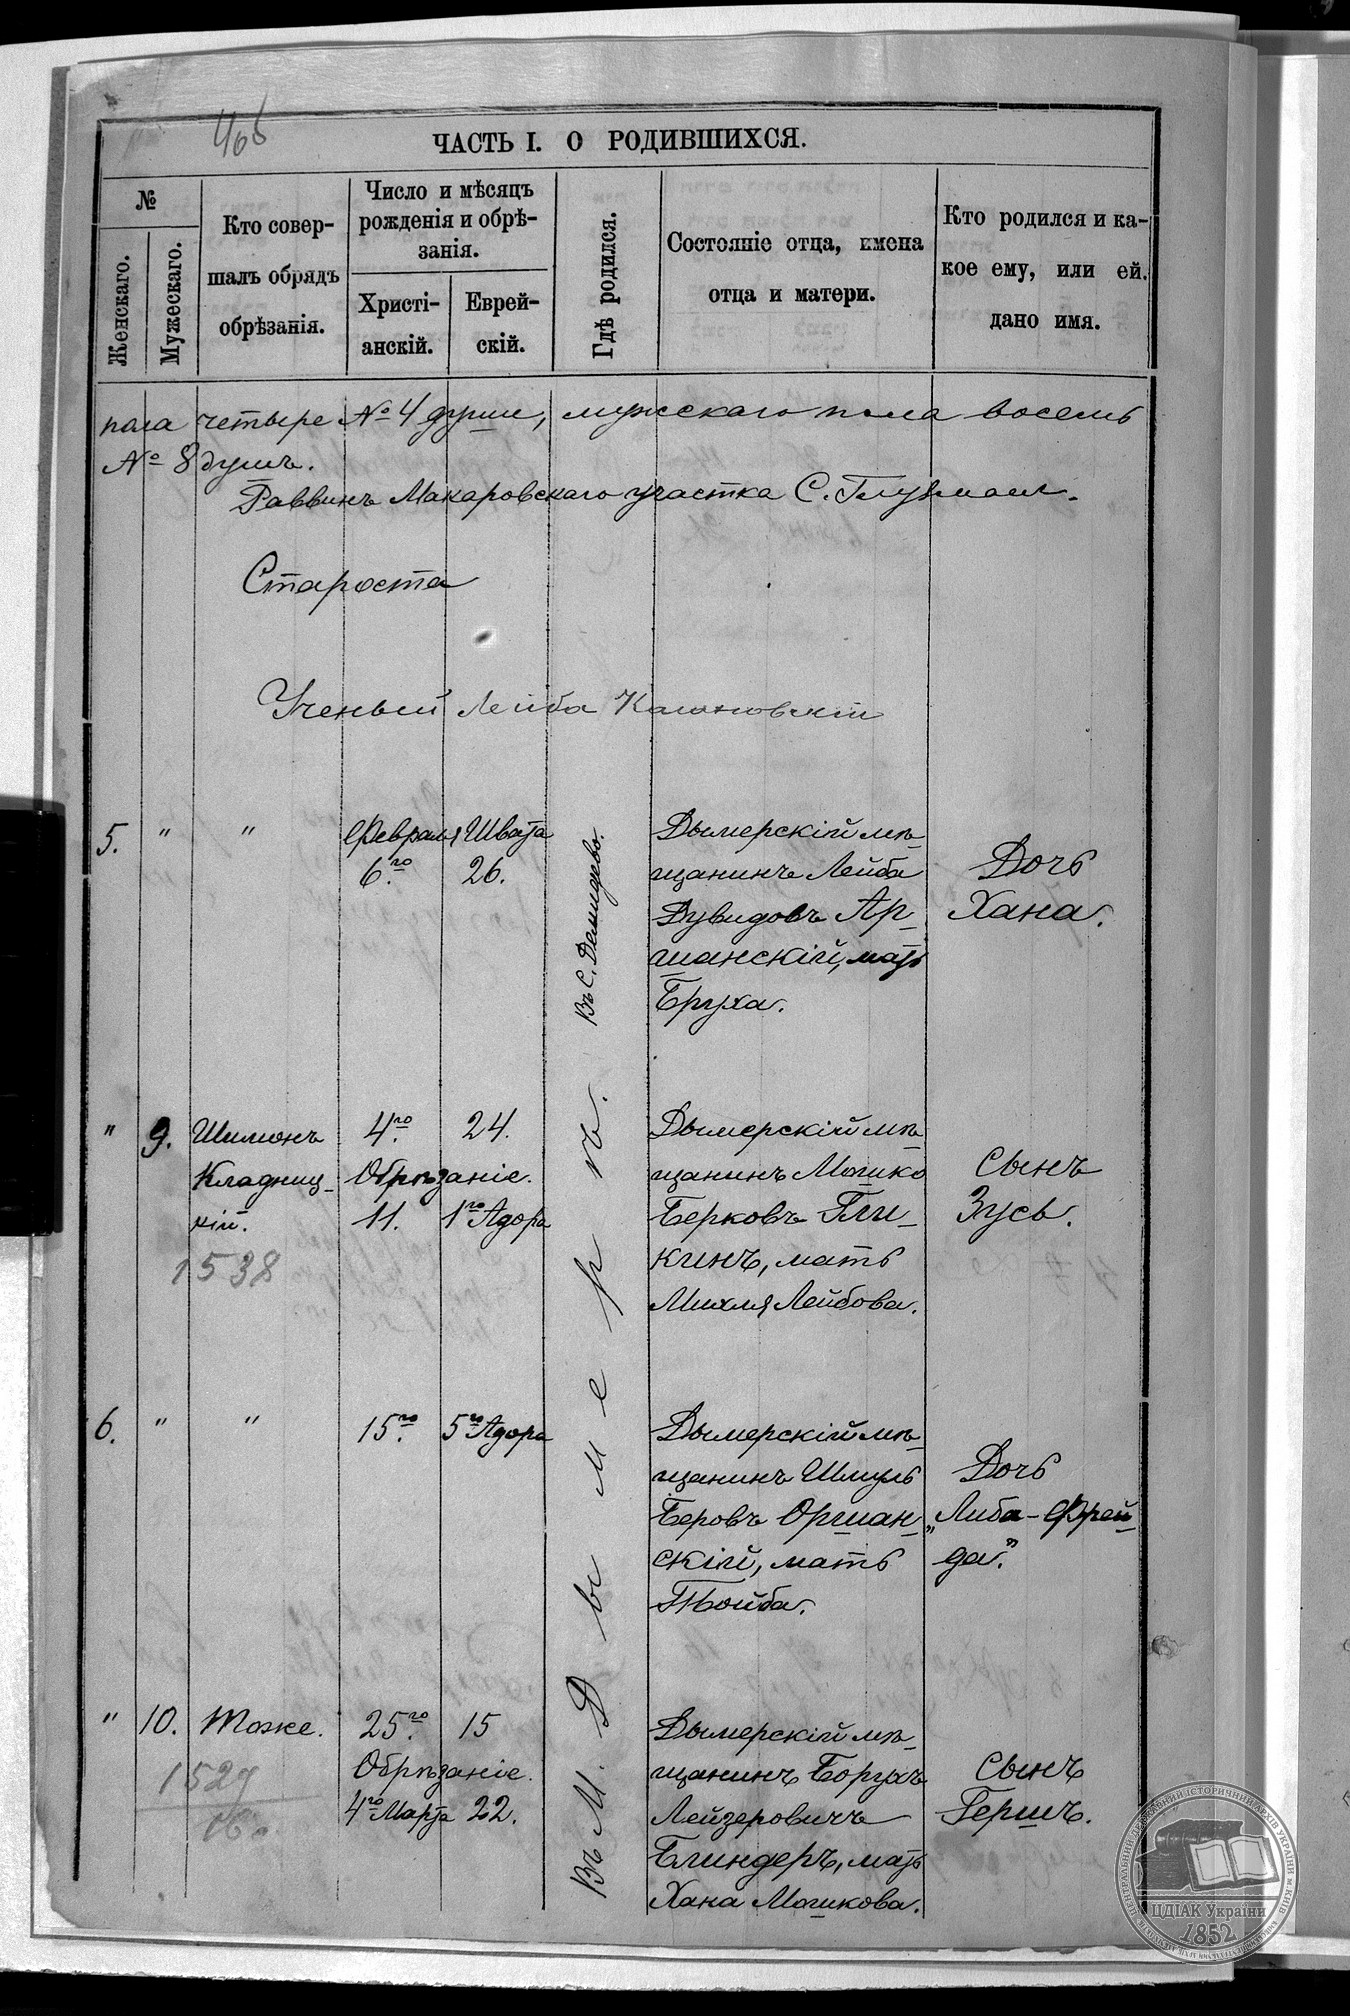 466
ЧАСТЬ I. О РОДИВШИХСЯ.
№
Женскаго.
Мужескаго.
Кто совер-
шалъ обрядъ
обрѣзанія.
Число и мѣсяцъ
рожденія и обрѣ-
занія.
Христі-
анскій.
Еврей-
скій.
Гдѣ родился.
Состояніе отца, имена
отца и матери.
Кто родился и ка-
кое ему, или ей.
дано имя.
пола четыре № 4 души, мужскаго пола восемь
№ 8 душъ.
Раввинъ Макаровскаго участка С. Глузман.
Староста
Ученый Лейба
5. " "
Февраля Швата
6.го 26.
Въ С. Демидево.
Дымерскій мѣ-
щанинъ Лейба
Дувидовъ Ар-
шанскій, мать
Бруха.
Дочь
Хана.
" 9. Шимонъ
Кладниц-
кій.
1538
4.го 24.
Обрѣзаніе.
11. 1го Адора
Дымерскій мѣ-
щанинъ Мошко
Берковъ Гли-
кинъ, мать
Михля Лейбова.
Сынъ
Зусь.
6. " "
15.го 5го Адора
Въ М. Дымерѣ.
Дымерскій мѣ-
щанинъ Шмуль
Беровъ Оршан-
скій, мать
Тойба.
Дочь
„Либа-Фрей-
да."
" 10. Тоже.
1527
25.го 15
Обрѣзаніе.
4го Марта 22.
Дымерскій мѣ-
щанинъ Борухъ
Лейзеровичъ
Блиндеръ, мать
Хана Мошкова.
Сынъ
Гершъ.
ЦЕНТРАЛЬНИЙ ДЕРЖАВНИЙ ІСТОРИЧНИЙ АРХІВ УКРАЇНИ м. КИЇВ
ЦДІАК України
1852